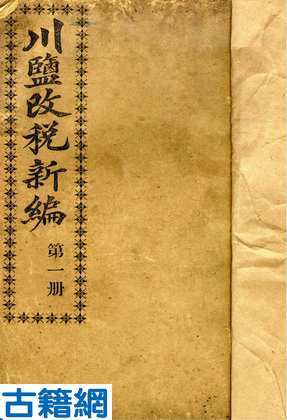 川鹽改税新編
第一册
古籍網